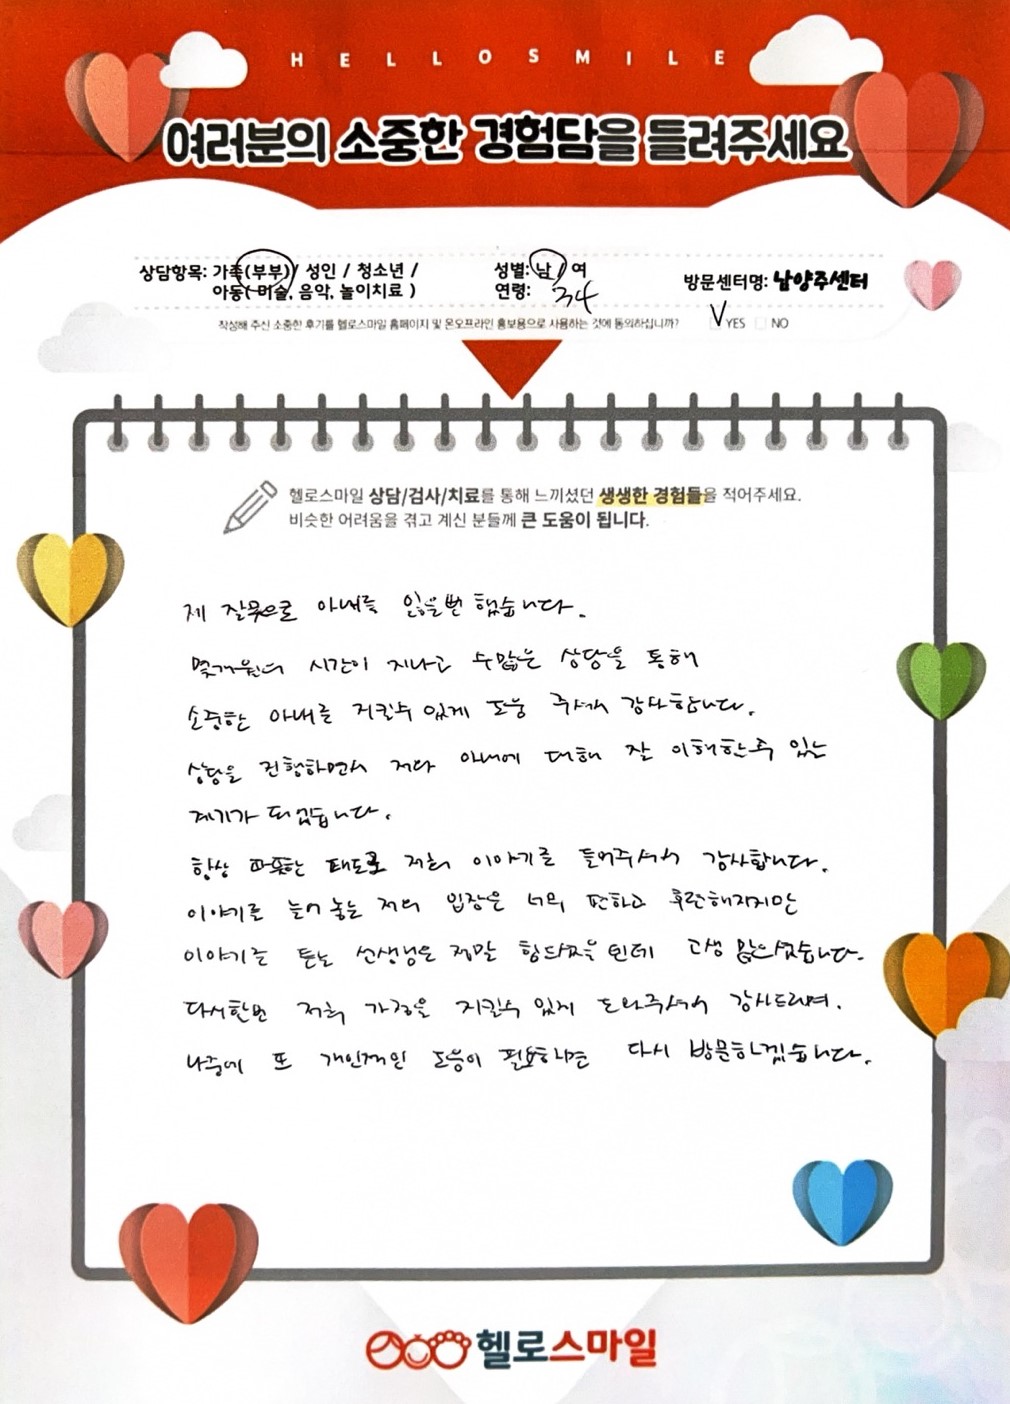 HELLOSMILE
여러분의 소중한 경험담을 들려주세요
상담항목: 가족(부부) / 성인 / 청소년 /
아동( 미술, 음악, 놀이치료 )
성별: 남 / 여
연령: 34
방문센터명: 남양주센터
작성해 주신 소중한 후기를 헬로스마일 홈페이지 및 온오프라인 홍보용으로 사용하는 것에 동의하십니까? V YES NO
헬로스마일 상담/검사/치료를 통해 느끼셨던 생생한 경험들을 적어주세요.
비슷한 어려움을 겪고 계신 분들께 큰 도움이 됩니다.
제 잘못으로 아내를 잃을뻔 했습니다.
몇개월의 시간이 지나고 수많은 상담을 통해
소중한 아내를 지킬수 있게 도움 주셔서 감사합니다.
상담을 진행하면서 저와 아내에 대해 잘 이해할수 있는
계기가 되었습니다.
항상 따뜻한 태도로 저희 이야기를 들어주셔서 감사합니다.
이야기를 늘어 놓는 저의 입장은 너무 편하고 후련해지지만
이야기를 듣는 선생님은 정말 힘드셨을 텐데 고생 많으셨습니다.
다시한번 저희 가정을 지킬수 있게 도와주셔서 감사드리며.
나중에 또 개인적인 도움이 필요하면 다시 방문하겠습니다.
헬로스마일